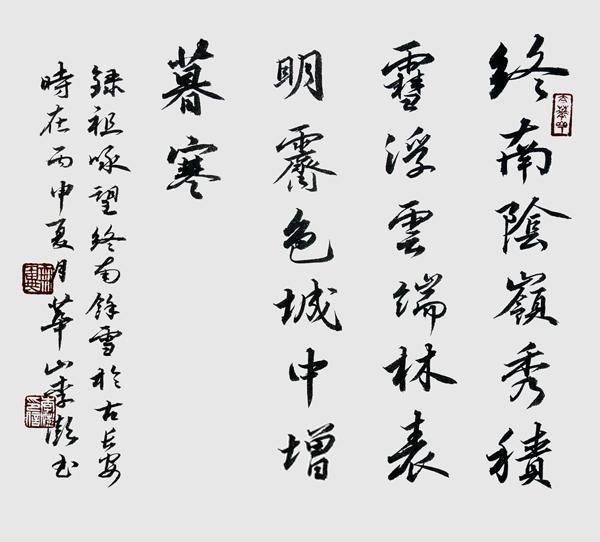 終南陰嶺秀積
雪浮雲端林表
明霽色城中增
暮寒
録祖咏望終南餘雪於古長安
時在丙申夏月華山李書